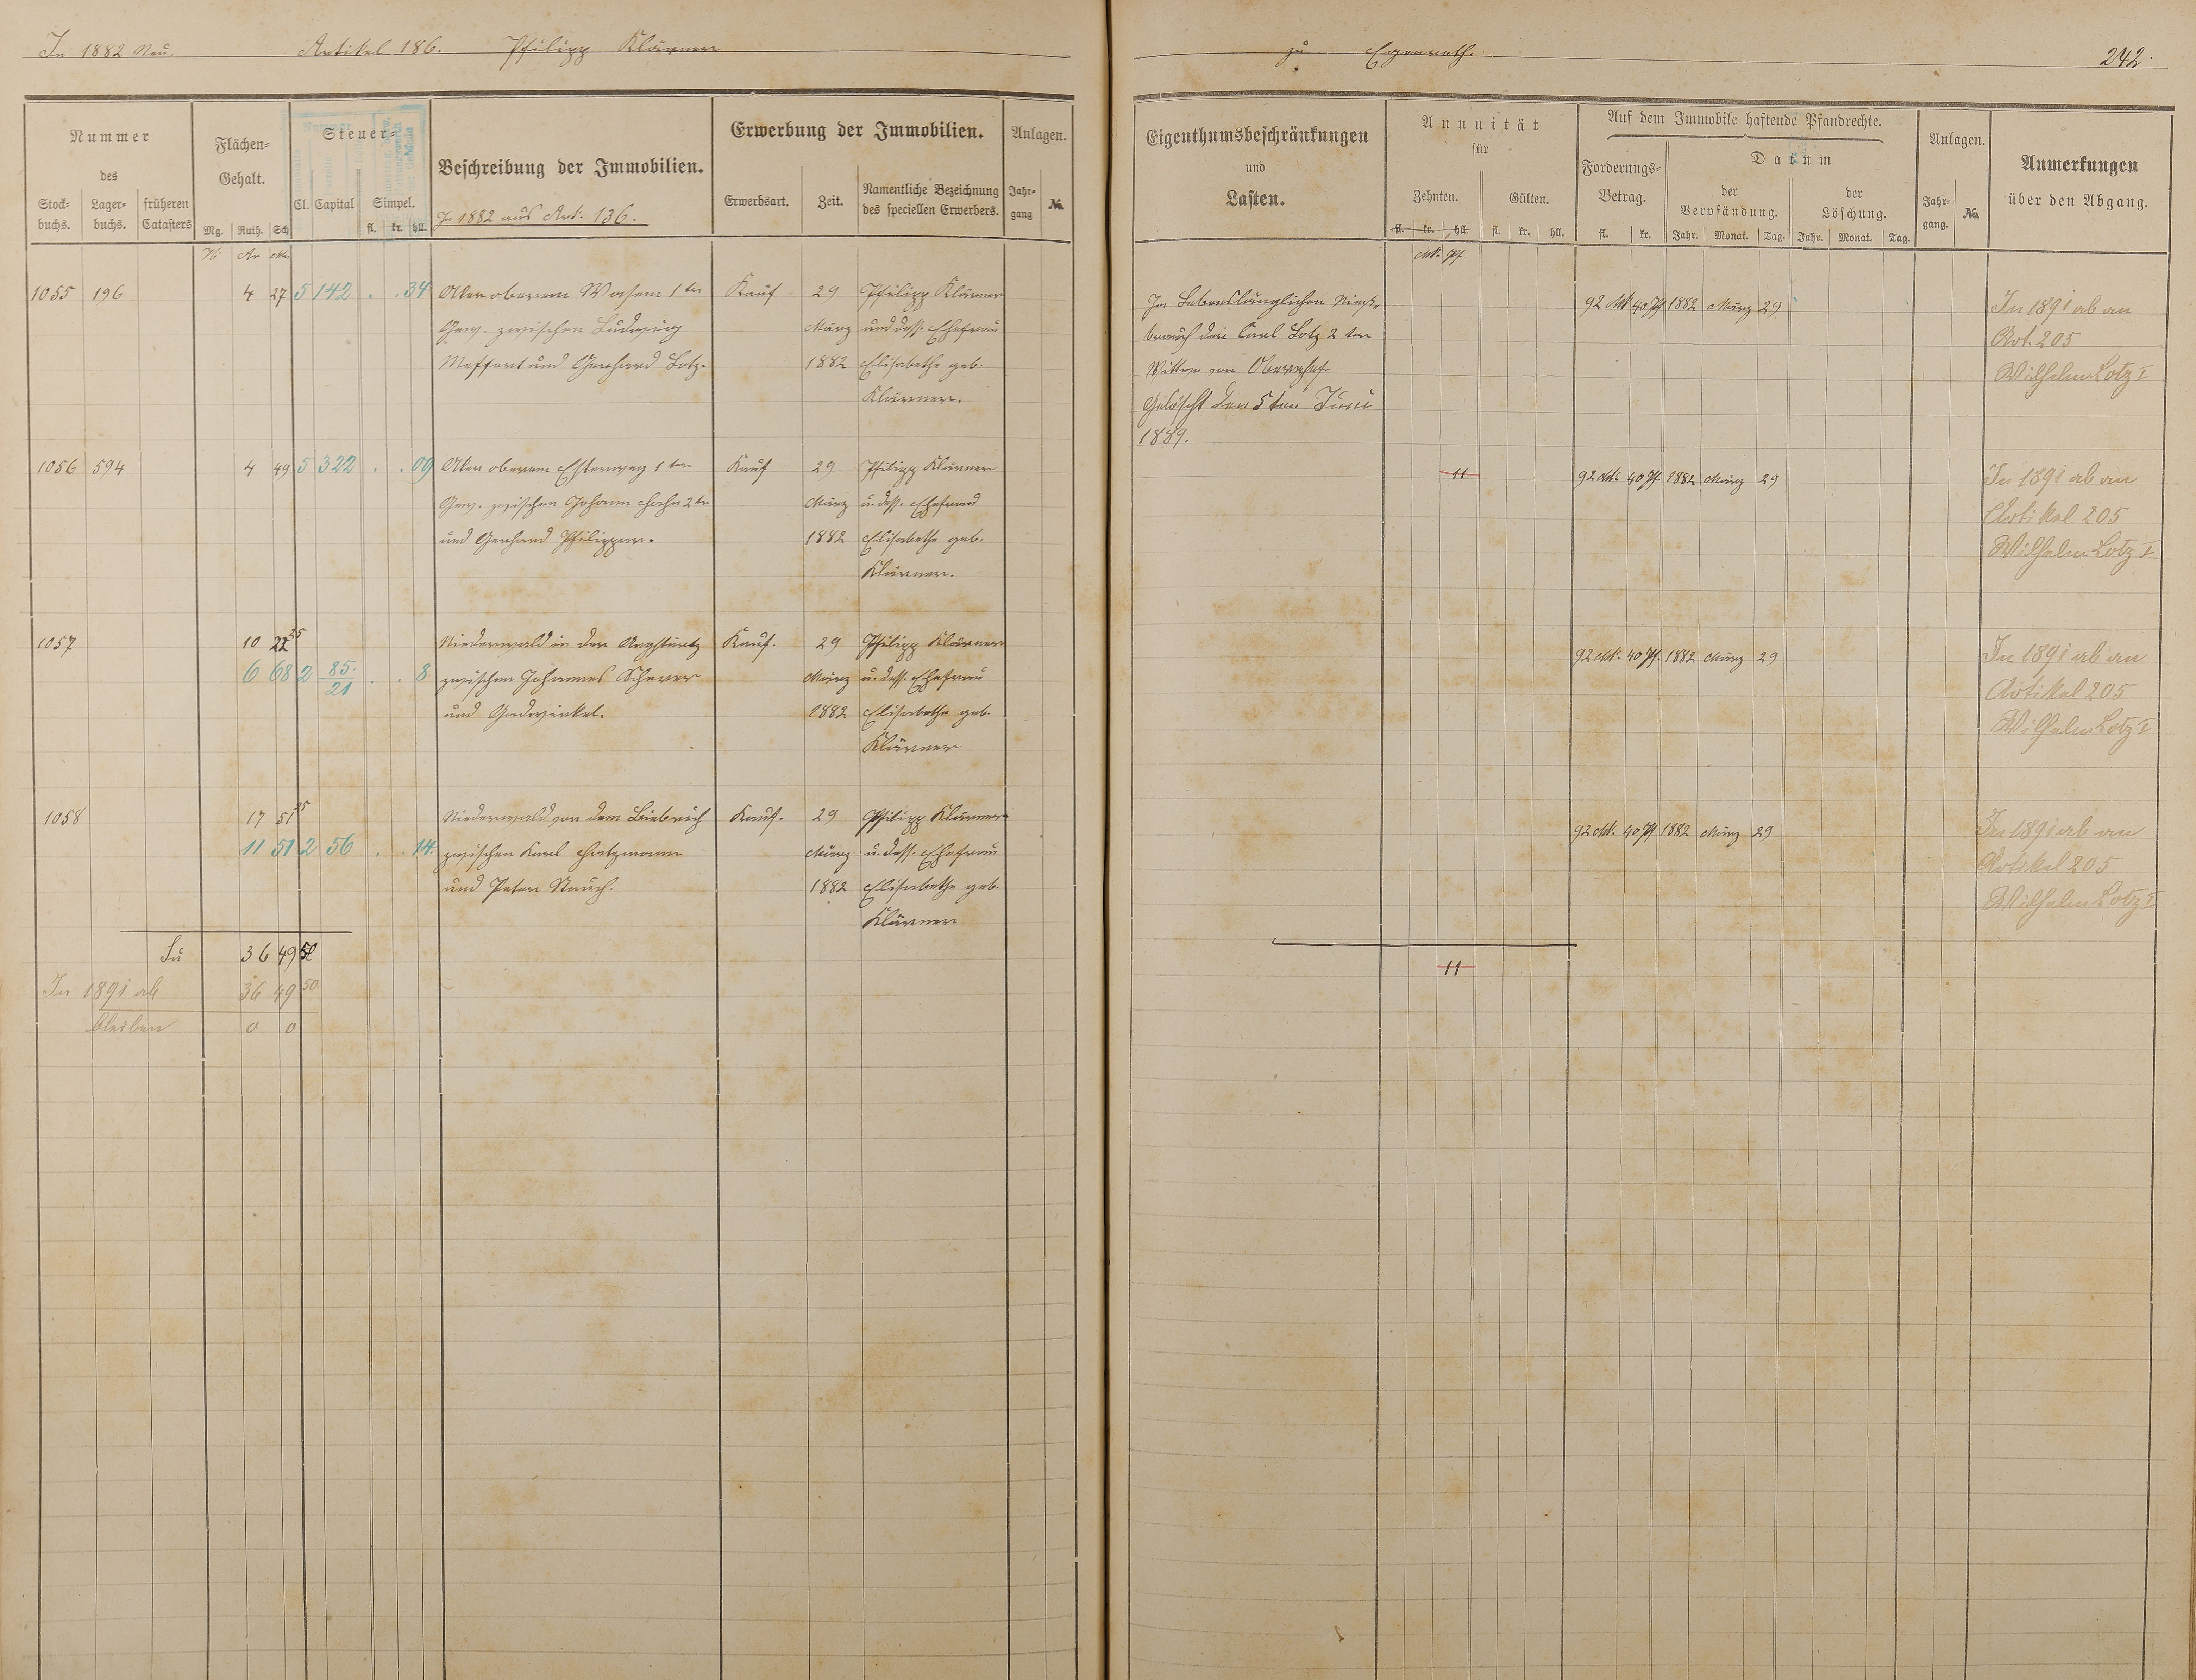 In 1882 Neu. Artikel 186. Philipp Klärner
zu Egenroth. 242.
Nummer
des
Stock-
buchs.
Lager-
buchs.
früheren
Catasters
Flächen-
Gehalt.
Mg. Ruth. Sch
Steuer-
Cl. Capital Simpel.
fl. kr. hll.
Beschreibung der Immobilien.
In 1882 aus Art. 136.
Erwerbung der Immobilien.
Erwerbsart. Zeit.
Namentliche Bezeichnung
des speciellen Erwerbers.
Anlagen.
Jahr-
gang
No.
Eigenthumsbeschränkungen
und
Lasten.
Annuität
für
Zehnten. Gülten.
fl. kr. hll. fl. kr. hll.
Mk. Pf.
Auf dem Immobile haftende Pfandrechte.
Forderungs-
Betrag.
fl. kr.
Datum
der
Verpfändung.
der
Löschung.
Jahr. Monat. Tag. Jahr. Monat. Tag.
Anlagen.
Jahr-
gang.
No.
Anmerkungen
über den Abgang.
Ar
1055 196 4 27 5 142 . . 34 Acker oberem Wasem 1ter Kauf 29 Philipp Klärner
Gew. zwischen Ludwig März und dess. Ehefrau
Meffert und Gerhard Lotz. 1882 Elisabethe geb.
Klärner.
Im Lebenslänglichen Nieß-
brauch der Carl Lotz 2ter
Wittwe von Obernhof
Gelöscht den 5ten Juni
1889.
92 Mk 40 Pf 1882 März 29
In 1891 ab an
Art. 205
Wilhelm Lotz I
1056 594 4 49 5 322 . . 09 Acker oberem 1ter Kauf 29 Philipp Klärner
Gew. zwischen Johann Hahn 2ter März u. dess. Ehefrau
und Gerhard Philippar. 1882 Elisabethe geb.
Klärner.
11 92 Mk. 40 Pf. 1882 März 29
In 1891 ab an
Artikel 205
Wilhelm Lotz I
1057 10 22 25 Niederwald in der Kauf. 29 Philipp Klärner
6 68 2 85. 21 . . 8 zwischen Johannes Scherer März u. dess. Ehefrau
und 1882 Elisabethe geb.
Klärner
92 Mk. 40 Pf. 1882 März 29
In 1891 ab an
Artikel 205
Wilhelm Lotz I
1058 17 51 25 Niederwald vor dem Kauf. 29 Philipp Klärner
11 51 2 56 . . 14. zwischen Karl Hatzmann März u. dess. Ehefrau
und Peter Stauch. 1882 Elisabethe geb.
Klärner
92 Mk. 40 Pf 1882 März 29
In 1891 ab an
Artikel 205
Wilhelm Lotz I
Su 36 49 50
11
In 1891 ab 36 49 50
bleiben 0 0